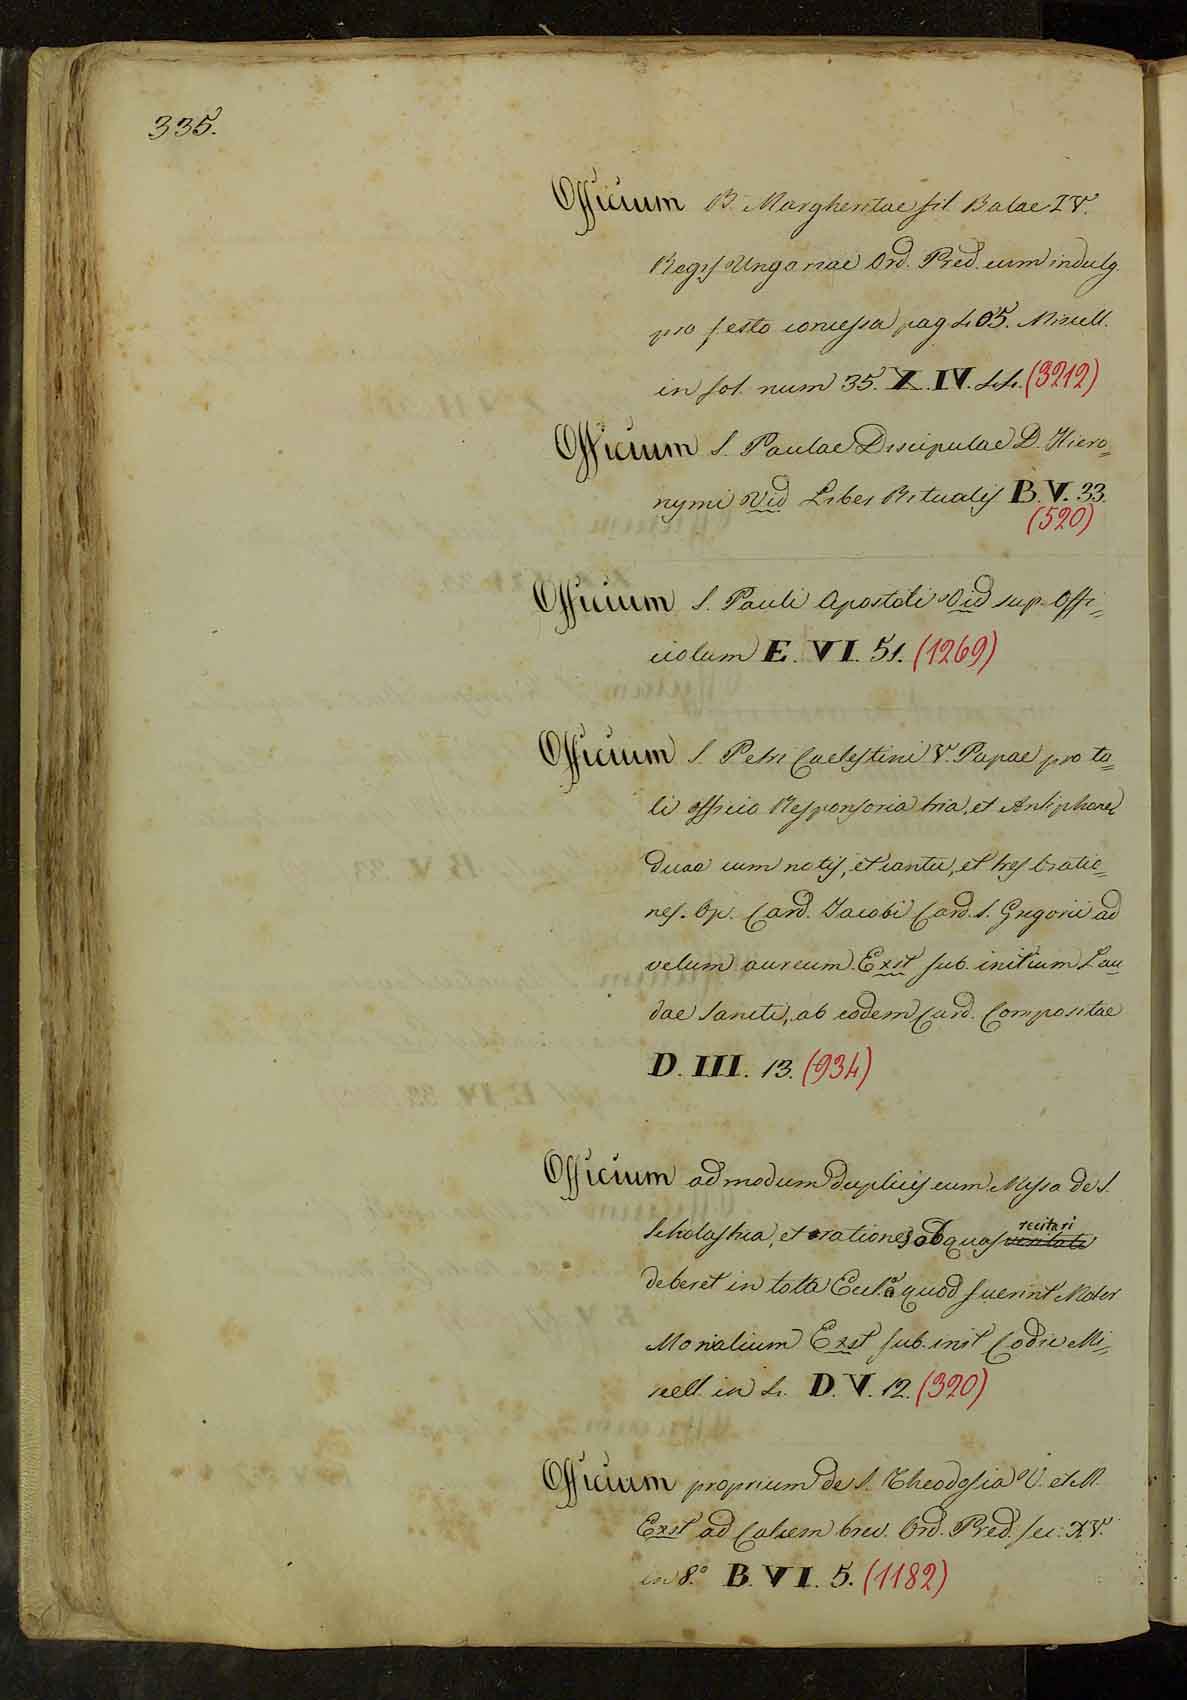 335.
Officium B. Margheritae fil. Balae IV.
Regis Ungariae Ord. Pred. cum indulg.
pro festo concessa pag 405. Miscell.
in fol. num 35. X. IV. 44. (3212)
Officium S. Paulae Discipulae D. Hiero=
nymi Vid Liber Ritualis B. V. 33.
(520)
Officium S. Pauli Apostoli Vid sup. Offi=
ciolum E. VI. 51. (1269)
Officium S. Petri Caelestini V. Papae pro to=
li officio Responsoria tria, et Antiphonae
duae cum notis, et cantu, et tres Oratio=
nes. Op. Card. Jacobi Card. S. Grigorii ad
velum aureum. Exst sub. initium Lau=
dae Sancti, ab eodem Card. Compositae
D. III. 13. (934)
Officium ad modum duplicis cum Missa de S.
Scholastica, et orationes ob quas recitari
deberet in tota Eccl.a quod fuerint Mater
Monialium Exst sub. init Codic Mi=
scell. in 4. D. V. 12. (320)
Officium proprium de S. Theodosia V. et M.
Exst ad Calcem brev. Ord. Pred. sec. XV.
in 8.o B. VI. 5. (1182)